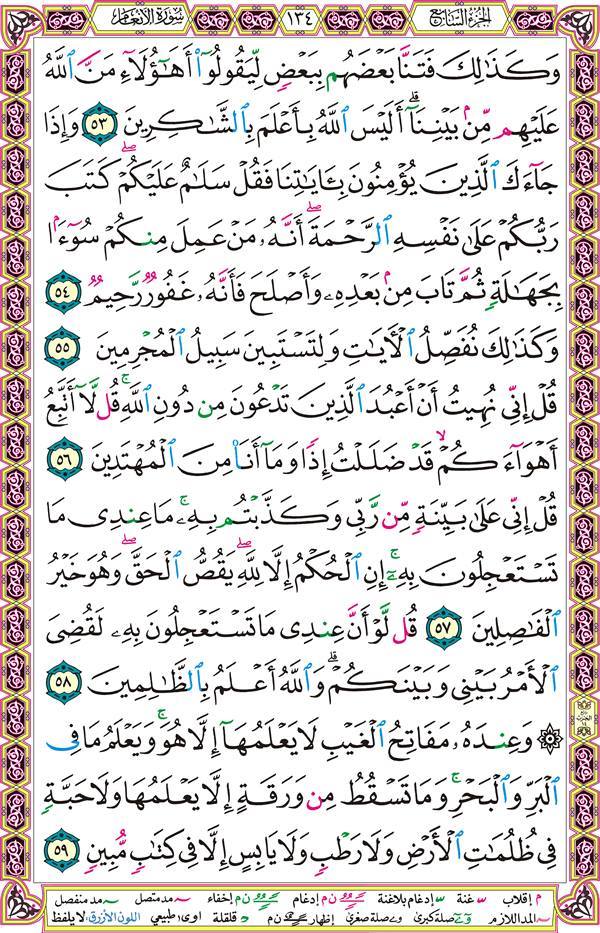 الجزء السابع
١٣٤
سورة الأنعام
وَكَذَٰلِكَ فَتَنَّا بَعْضَهُم بِبَعْضٍ لِّيَقُولُوٓا۟ أَهَٰٓؤُلَآءِ مَنَّ ٱللَّهُ
عَلَيْهِم مِّنۢ بَيْنِنَآ ۗ أَلَيْسَ ٱللَّهُ بِأَعْلَمَ بِٱلشَّٰكِرِينَ ٥٣ وَإِذَا
جَآءَكَ ٱلَّذِينَ يُؤْمِنُونَ بِـَٔايَٰتِنَا فَقُلْ سَلَٰمٌ عَلَيْكُمْ ۖ كَتَبَ
رَبُّكُمْ عَلَىٰ نَفْسِهِ ٱلرَّحْمَةَ ۖ أَنَّهُۥ مَنْ عَمِلَ مِنكُمْ سُوٓءًۢا
بِجَهَٰلَةٍ ثُمَّ تَابَ مِنۢ بَعْدِهِۦ وَأَصْلَحَ فَأَنَّهُۥ غَفُورٌ رَّحِيمٌ ٥٤
وَكَذَٰلِكَ نُفَصِّلُ ٱلْـَٔايَٰتِ وَلِتَسْتَبِينَ سَبِيلُ ٱلْمُجْرِمِينَ ٥٥
قُلْ إِنِّى نُهِيتُ أَنْ أَعْبُدَ ٱلَّذِينَ تَدْعُونَ مِن دُونِ ٱللَّهِ ۚ قُل لَّآ أَتَّبِعُ
أَهْوَآءَكُمْ ۙ قَدْ ضَلَلْتُ إِذًا وَمَآ أَنَا۠ مِنَ ٱلْمُهْتَدِينَ ٥٦
قُلْ إِنِّى عَلَىٰ بَيِّنَةٍ مِّن رَّبِّى وَكَذَّبْتُم بِهِۦ ۚ مَا عِندِى مَا
تَسْتَعْجِلُونَ بِهِۦٓ ۚ إِنِ ٱلْحُكْمُ إِلَّا لِلَّهِ ۖ يَقُصُّ ٱلْحَقَّ ۖ وَهُوَ خَيْرُ
ٱلْفَٰصِلِينَ ٥٧ قُل لَّوْ أَنَّ عِندِى مَا تَسْتَعْجِلُونَ بِهِۦ لَقُضِىَ
ٱلْأَمْرُ بَيْنِى وَبَيْنَكُمْ ۗ وَٱللَّهُ أَعْلَمُ بِٱلظَّٰلِمِينَ ٥٨
۞ وَعِندَهُۥ مَفَاتِحُ ٱلْغَيْبِ لَا يَعْلَمُهَآ إِلَّا هُوَ ۚ وَيَعْلَمُ مَا فِى
ٱلْبَرِّ وَٱلْبَحْرِ ۚ وَمَا تَسْقُطُ مِن وَرَقَةٍ إِلَّا يَعْلَمُهَا وَلَا حَبَّةٍ
فِى ظُلُمَٰتِ ٱلْأَرْضِ وَلَا رَطْبٍ وَلَا يَابِسٍ إِلَّا فِى كِتَٰبٍ مُّبِينٍ ٥٩
م إقلاب غنة إدغام بلاغنة ن م إدغام ن م إخفاء مد متصل مد منفصل
المد اللازم صلة كبرى صلة صغرى إظهار ن م قلقلة اوى طبيعي اللون الأزرق: لا يلفظ